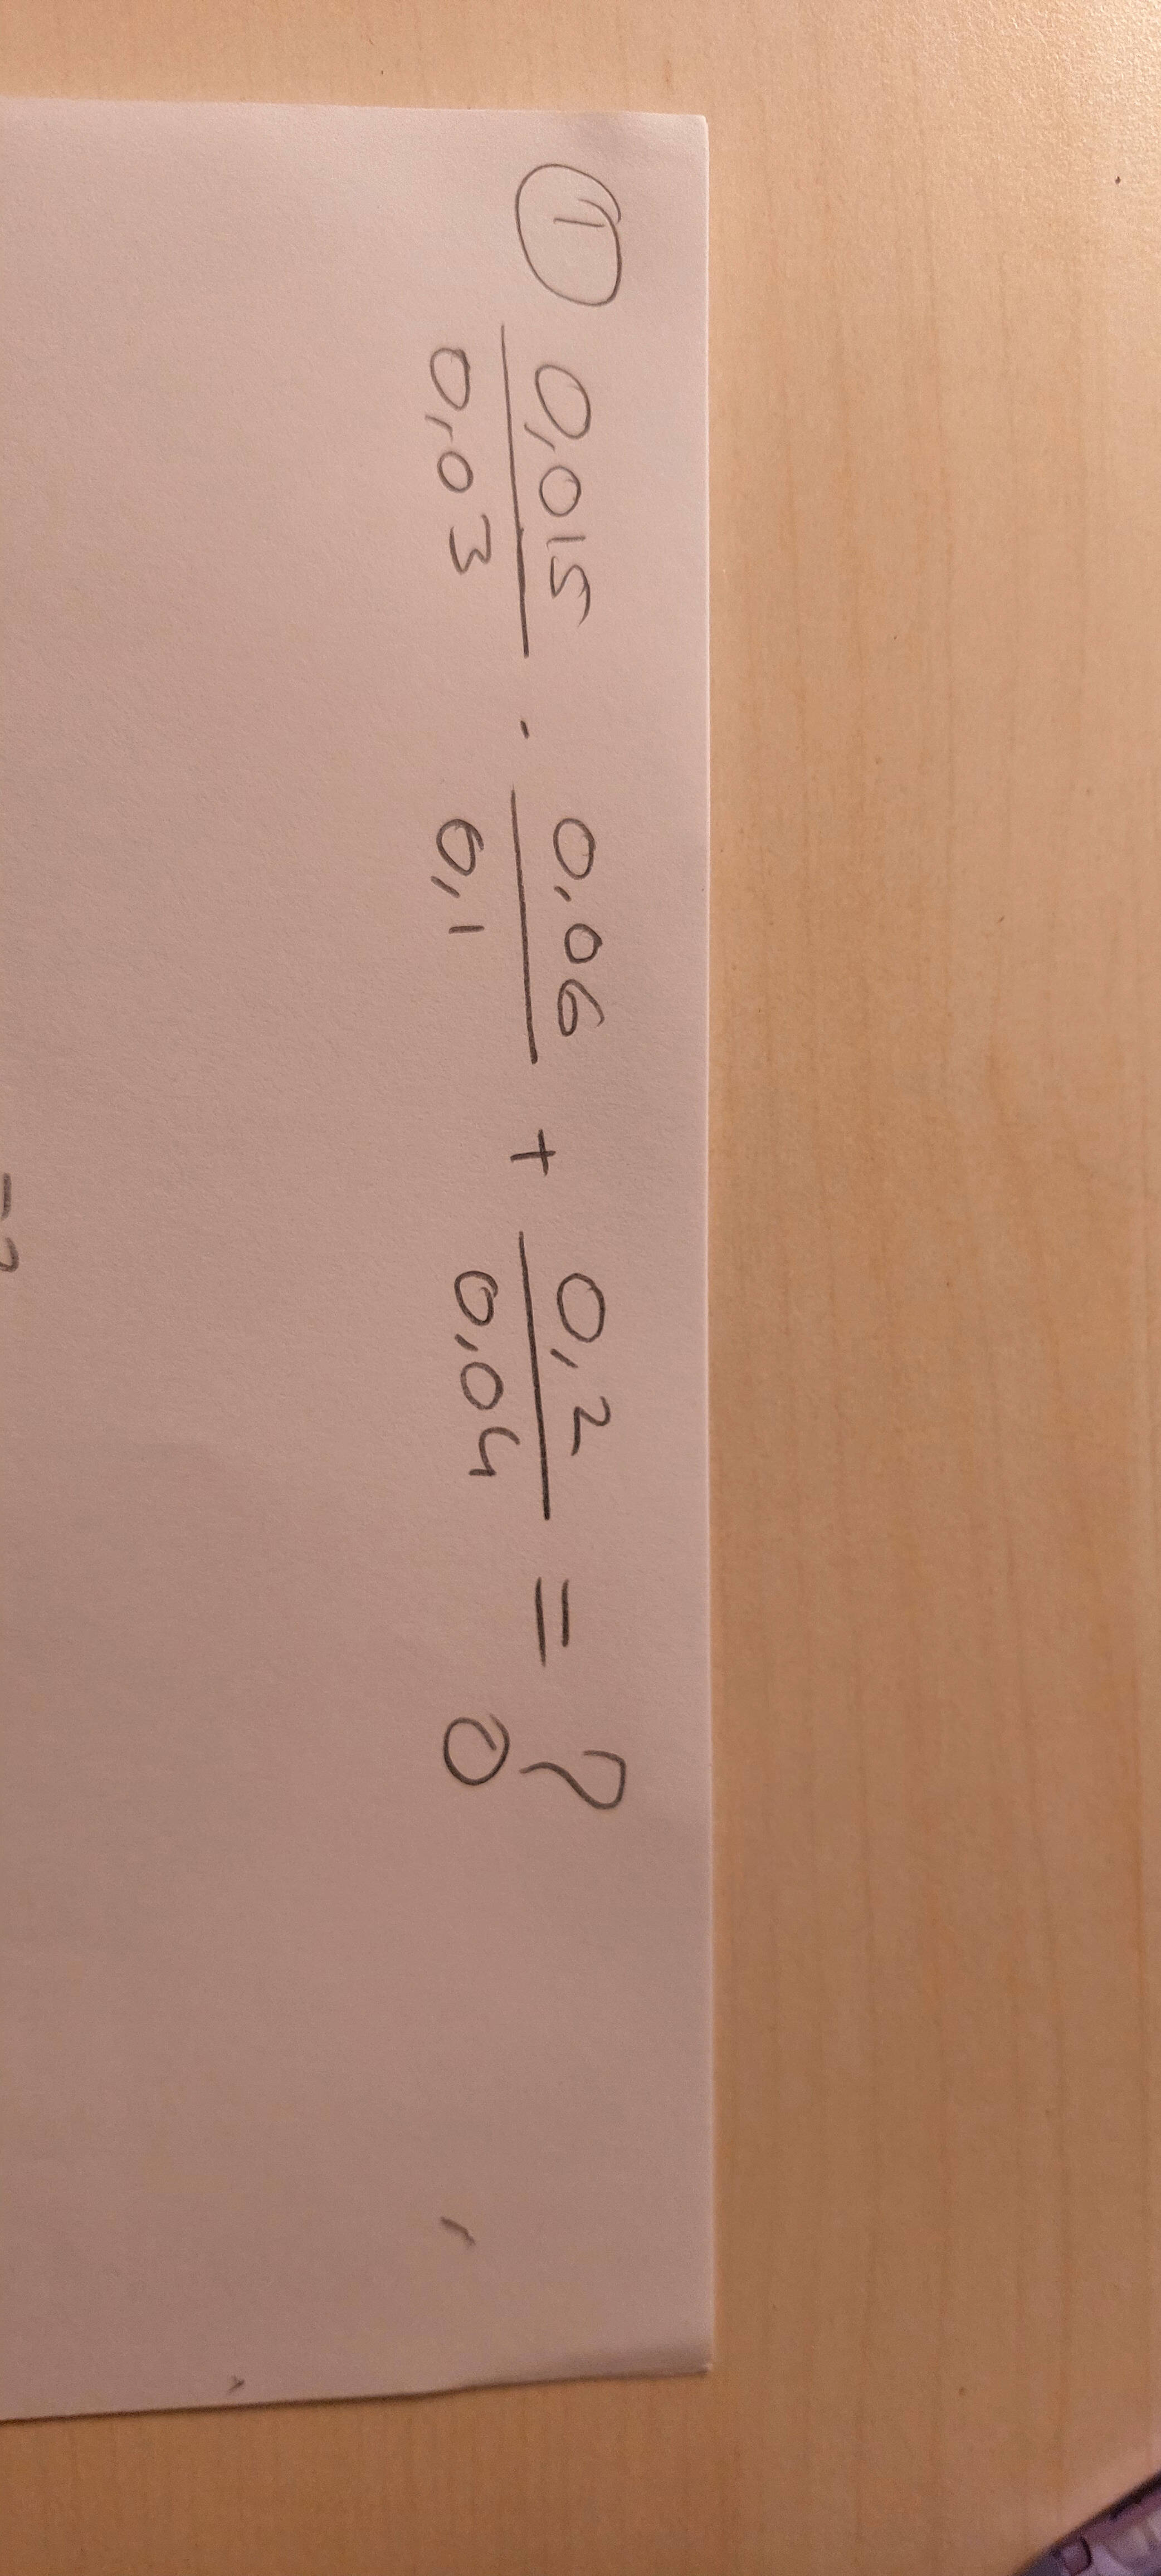 1 0,015/0,03 · 0,06/0,1 + 0,2/0,04 = ?